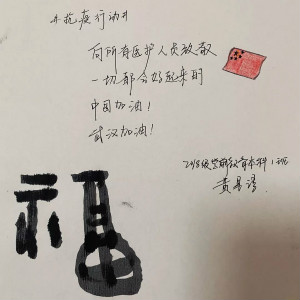 #抗疫行动#
向所有医护人员致敬
一切都会好起来的
中国加油!
武汉加油!
2018级学前教育本科1班
黄
福